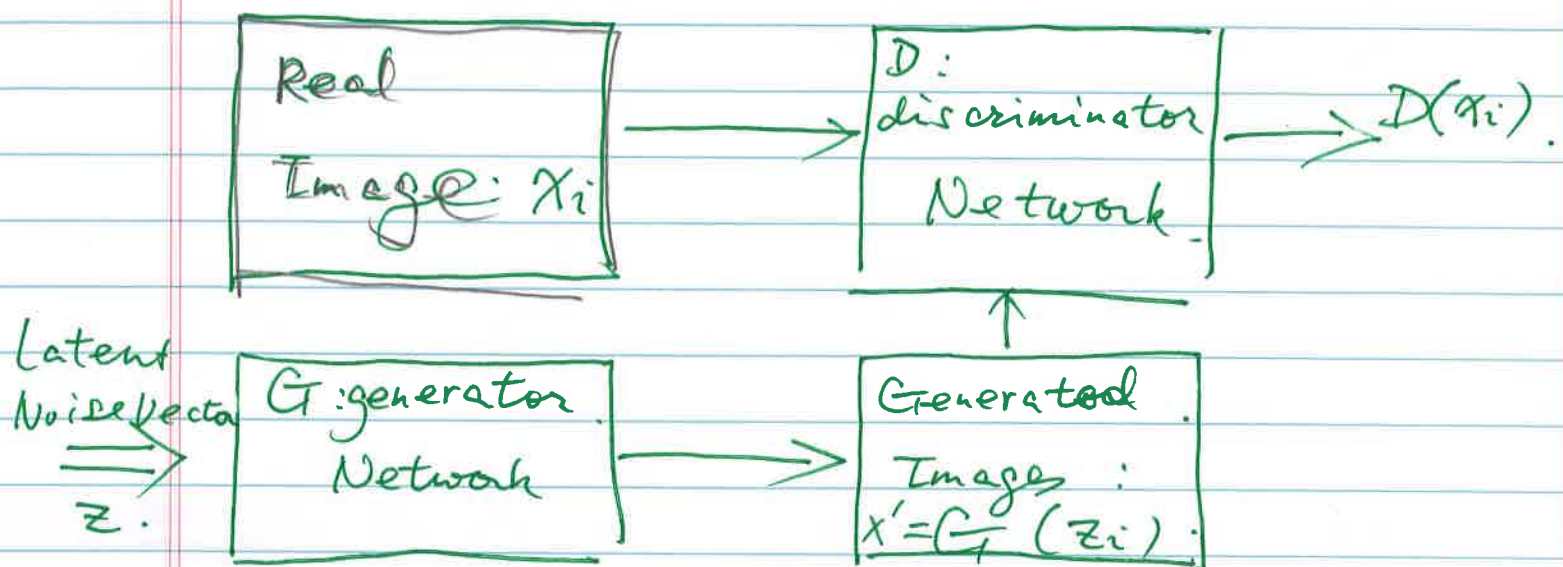 Real
Image: Xi
D:
discriminator
Network.
D(xi).
Latent
Noise Vecto
z.
G:generator
Network
Generated
Images:
x'=G(zi)